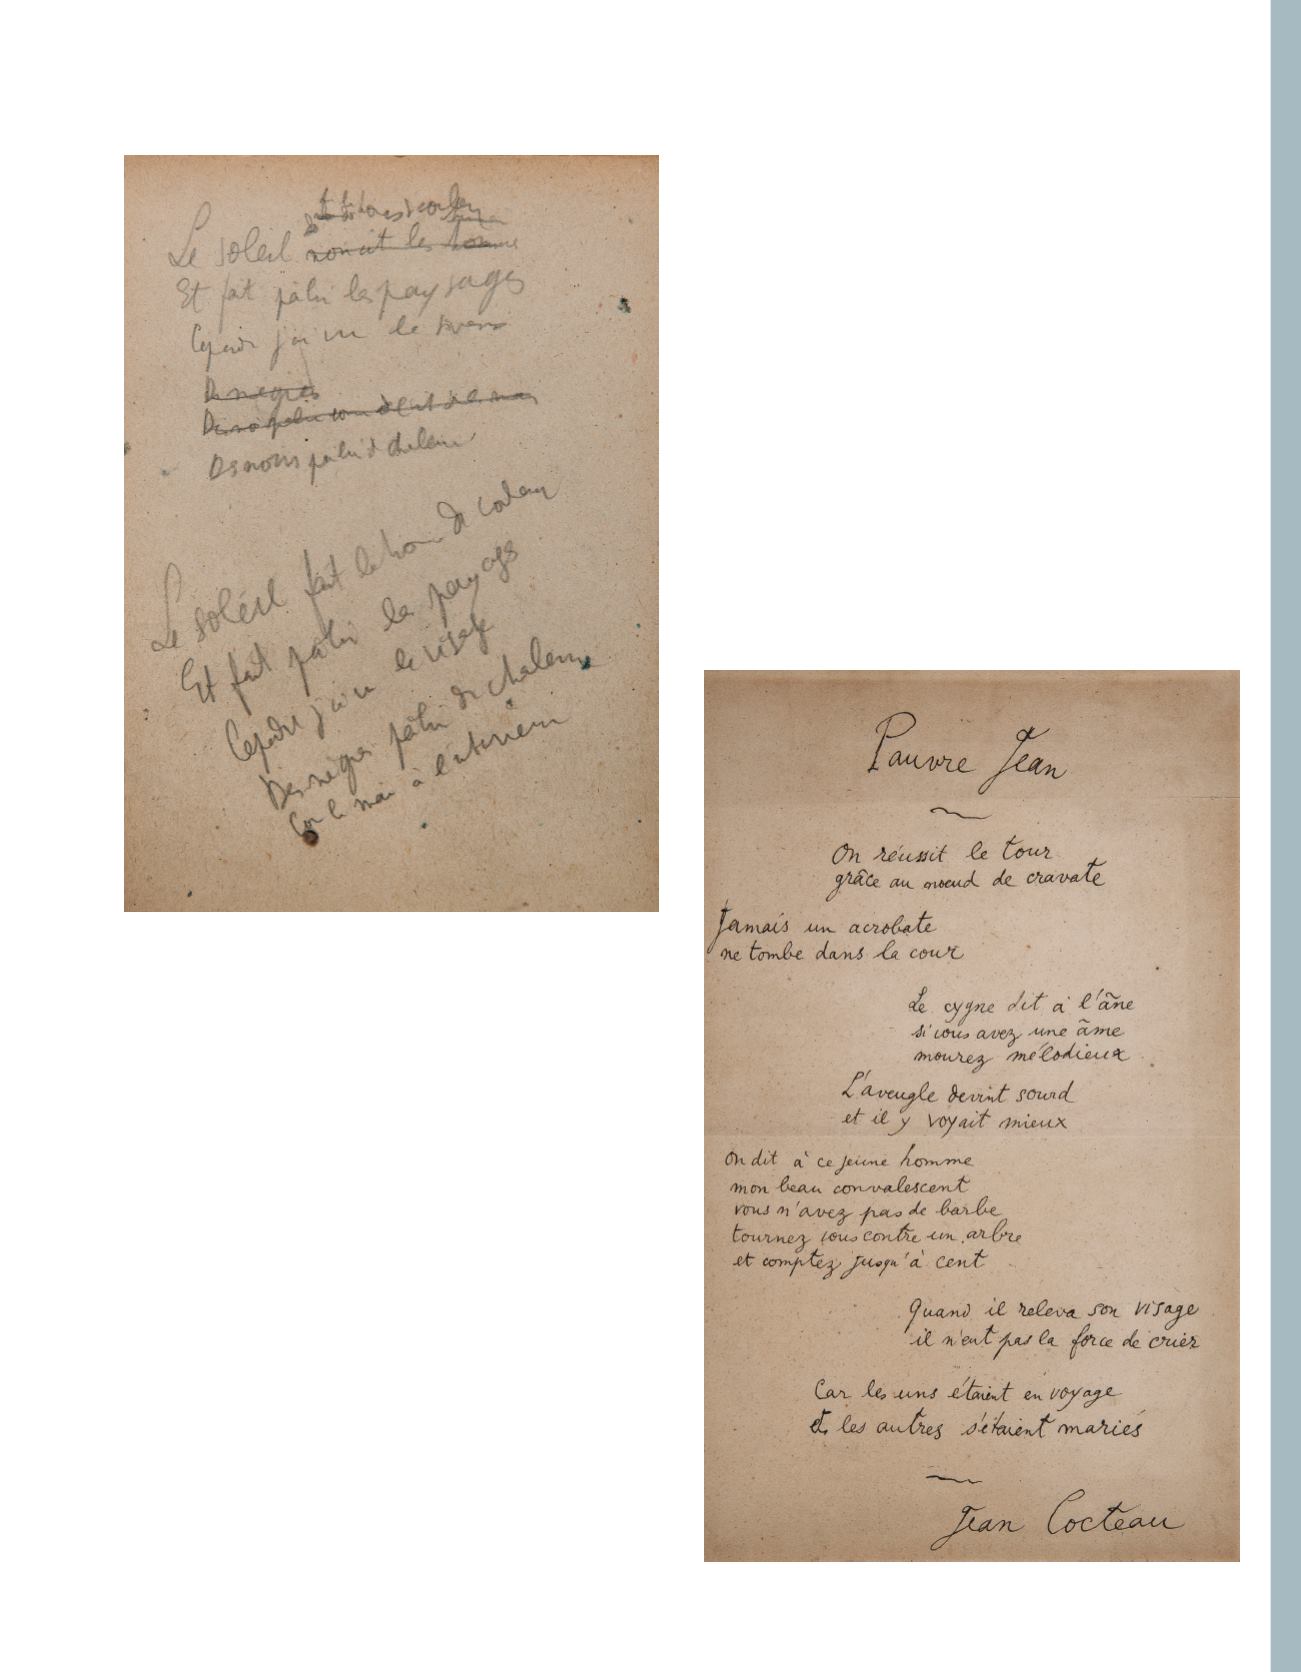 Le soleil noircit les
Et fait pâlir les paysages
j'ai vu le
Des nègres
Des noirs pâlir d chaleur
Le soleil fait le de couleur
Et fait pâlir les paysages
j'ai vu le visage
Des nègres pâlir de chaleur
à l'intérieur
Pauvre Jean
On réussit le tour
grâce au noeud de cravate
Jamais un acrobate
ne tombe dans la cour
Le cygne dit à l'âne
si vous avez une âme
mourez mélodieux
L'aveugle devint sourd
et il y voyait mieux
On dit à ce jeune homme
mon beau convalescent
vous n'avez pas de barbe
tournez vous contre un arbre
et comptez jusqu'à cent
Quand il releva son visage
il n'eut pas la force de crier
Car les uns étaient en voyage
et les autres s'étaient mariés
Jean Cocteau